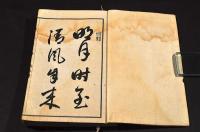 明月时至
清風自来